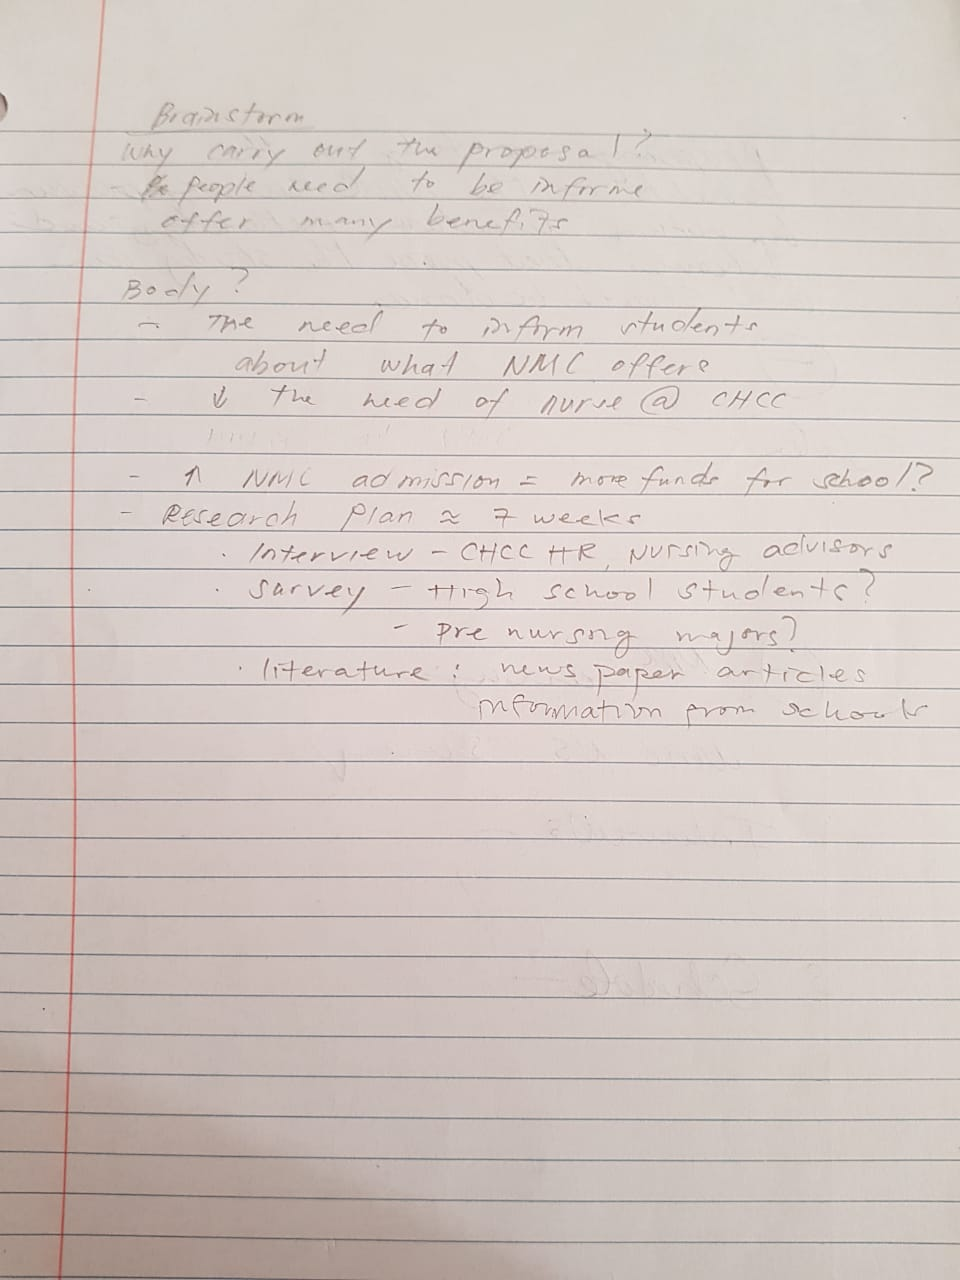 Brainstorm
Why carry out the proposal?
- People need to be informe
offer many benefits
Body?
- The need to inform students
about what NMC offers
- ↓ the need of nurse @ CHCC
- ↑ NMC admission = more funds for school?
- Research Plan ≈ 7 weeks
· Interview - CHCC HR, Nursing advisors
· Survey - High school students?
- Pre nursing majors?
· literature : news paper articles
information from schools